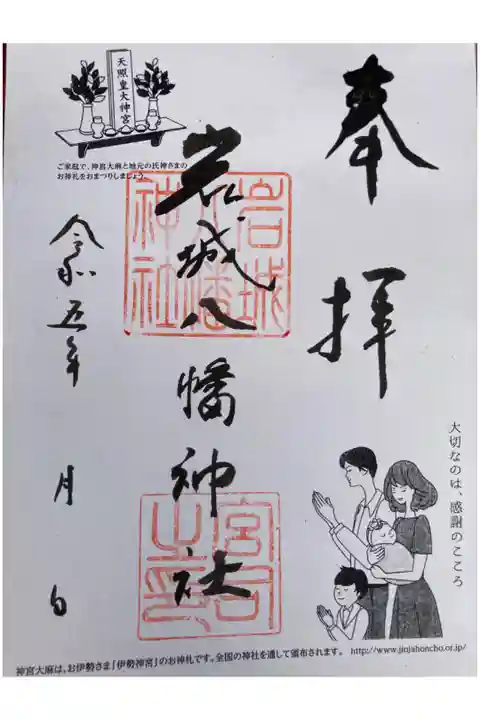 奉拝
岩城八幡神社
岩城
八幡
神社
宮司
之印
令和五年 月 日
天照皇大神宮
ご家庭で、神宮大麻と地元の氏神さまの
お神札をおまつりしましょう。
大切なのは、感謝のこころ
神宮大麻は、お伊勢さま「伊勢神宮」のお神札です。全国の神社を通して頒布されます。 http://www.jinjahoncho.or.jp/